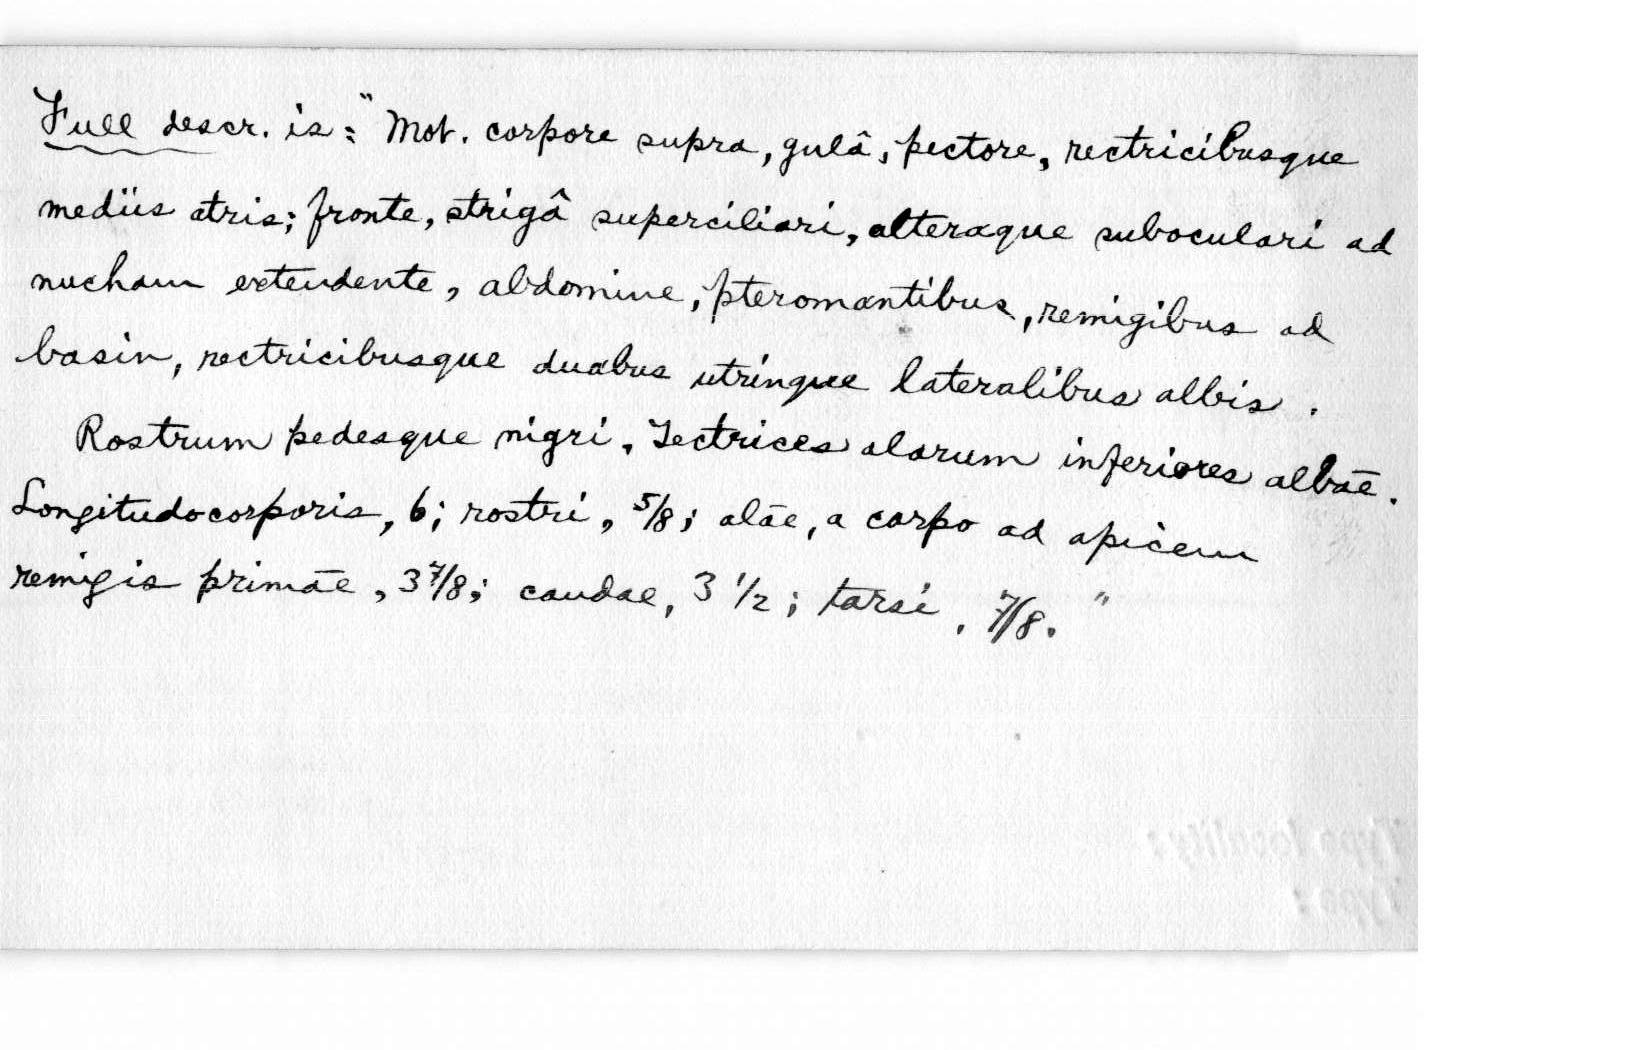 Full descr. is: "Mot. corpore supra, gulâ, pectore, rectricibusque
mediis atris; fronte, strigâ superciliari, alteraque suboculari ad
nucham extendente, abdomine, pteromantibus, remigibus ad
basin, rectricibusque duabus utrinque lateralibus albis.
Rostrum pedesque nigri. Tectrices alarum inferiores albāe.
Longitudo corporis, 6; rostri, 5/8; alāe, a carpo ad apicem
remigis primāe, 3 7/8; caudae, 3 1/2; tarsi, 7/8."
Type locality:
Type: